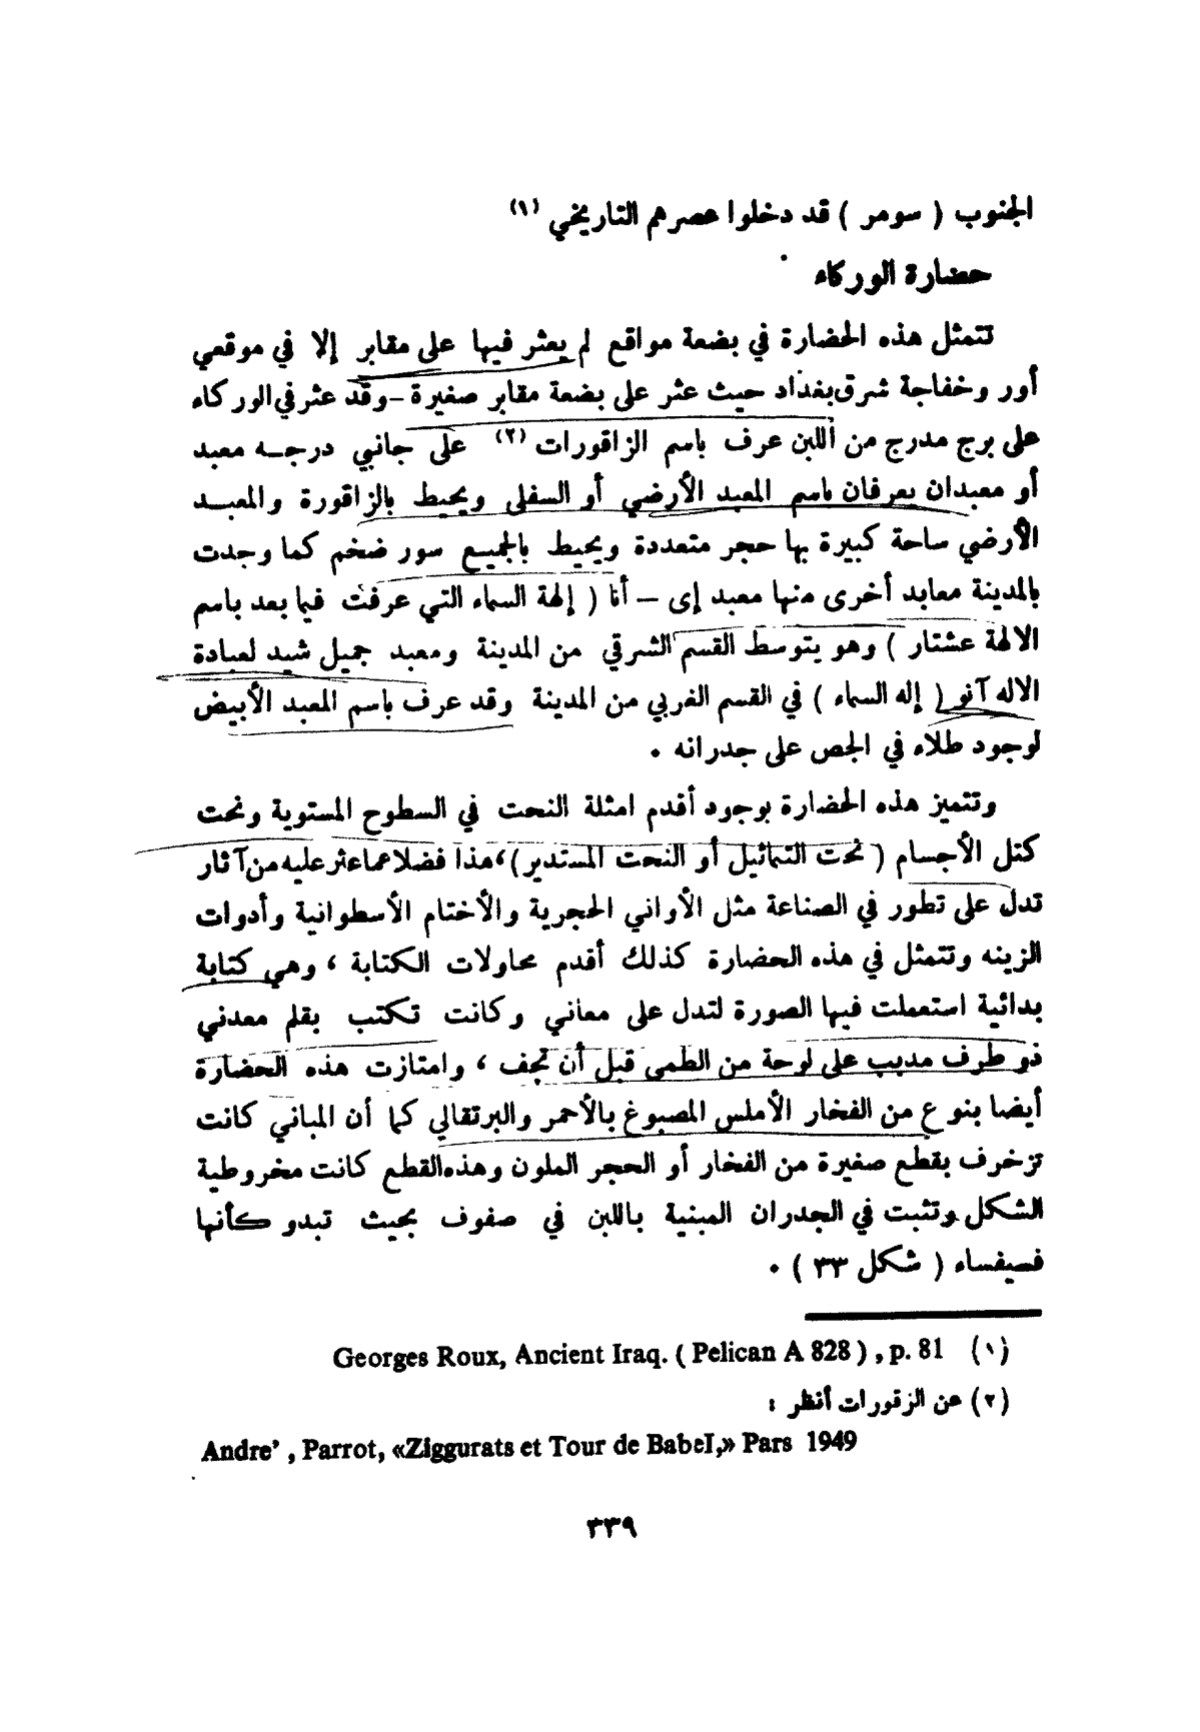 الجنوب ( سومر ) قد دخلوا عصرهم التاريخي (١)
حضارة الوركاء
تتمثل هذه الحضارة في بضعة مواقع لم يعثر فيها على مقابر إلا في موقعي
أور وخفاجة شرق بغداد حيث عثر على بضعة مقابر صغيرة – وقد عثر في الوركاء
على برج مدرج من اللبن عرف باسم الزاقورات (٢) على جانبي درجه معبد
أو معبدان يعرفان باسم المعبد الأرضي أو السفلى ويحيط بالزاقورة والمعبد
الأرضي ساحة كبيرة بها حجر متعددة ويحيط بالجميع سور ضخم كما وجدت
بالمدينة معابد أخرى منها معبد إى – أنا ( إلهة السماء التي عرفت فيما بعد باسم
الالهة عشتار ) وهو يتوسط القسم الشرقي من المدينة ومعبد جميل شيد لعبادة
الاله آنو ( إله السماء ) في القسم الغربي من المدينة وقد عرف باسم المعبد الأبيض
لوجود طلاء في الجص على جدرانه .
وتتميز هذه الحضارة بوجود أقدم امثلة النحت في السطوح المستوية ونحت
كتل الأجسام ( نحت التماثيل أو النحت المستدير ) ، هذا فضلا عما عثر عليه من آثار
تدل على تطور في الصناعة مثل الأواني الحجرية والأختام الأسطوانية وأدوات
الزينه وتتمثل في هذه الحضارة كذلك أقدم محاولات الكتابة ، وهي كتابة
بدائية استعملت فيها الصورة لتدل على معاني وكانت تكتب بقلم معدني
ذو طرف مدبب على لوحة من الطمى قبل أن تجف ، وامتازت هذه الحضارة
أيضا بنوع من الفخار الأملس المصبوغ بالأحمر والبرتقالي كما أن المباني كانت
تزخرف بقطع صغيرة من الفخار أو الحجر الملون وهذه القطع كانت مخروطية
الشكل وتثبت في الجدران المبنية باللبن في صفوف بحيث تبدو كأنها
فسيفساء ( شكل ٣٣ ) .
(١) Georges Roux, Ancient Iraq. ( Pelican A 828 ) , p. 81
(٢) عن الزقورات أنظر :
Andre’ , Parrot, «Ziggurats et Tour de Babel,» Pars 1949
٣٣٩